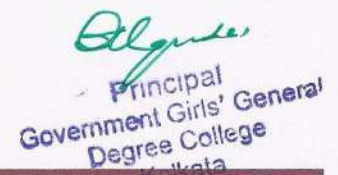 Principal
Government Girls' General
Degree College
Kolkata